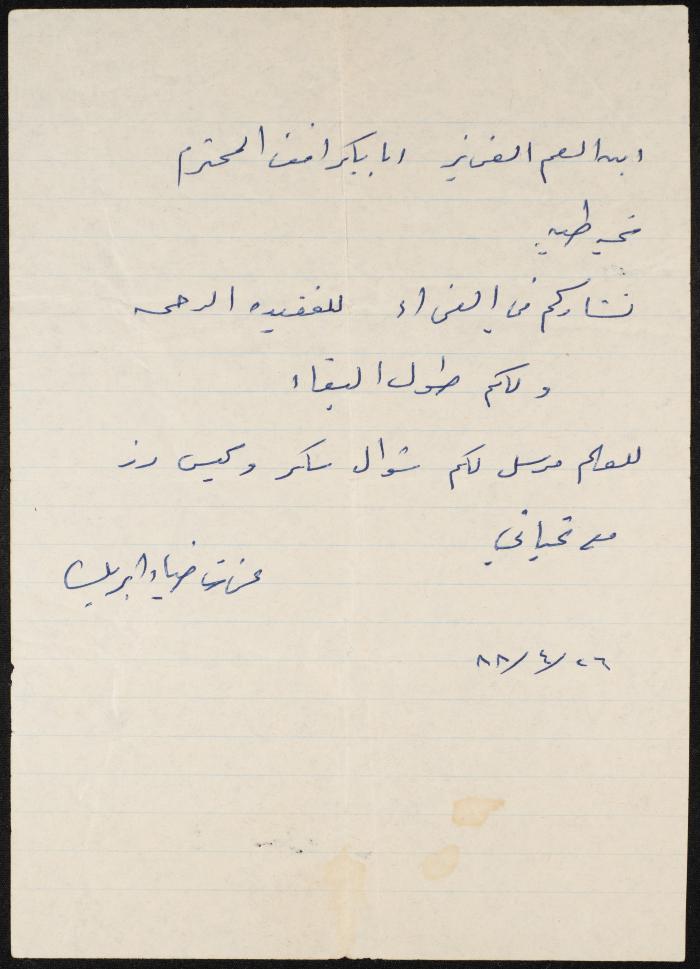 ابن العم العزيز ابا بكر افندي المحترم
تحيه طيبه
نشاركم في العزاء للفقيده الرحمه
ولكم طول البقاء
للعلم مرسل لكم شوال سكر وكيس رز
مع تحياتي
عزت ضياء
٢٦/٤/٨٨